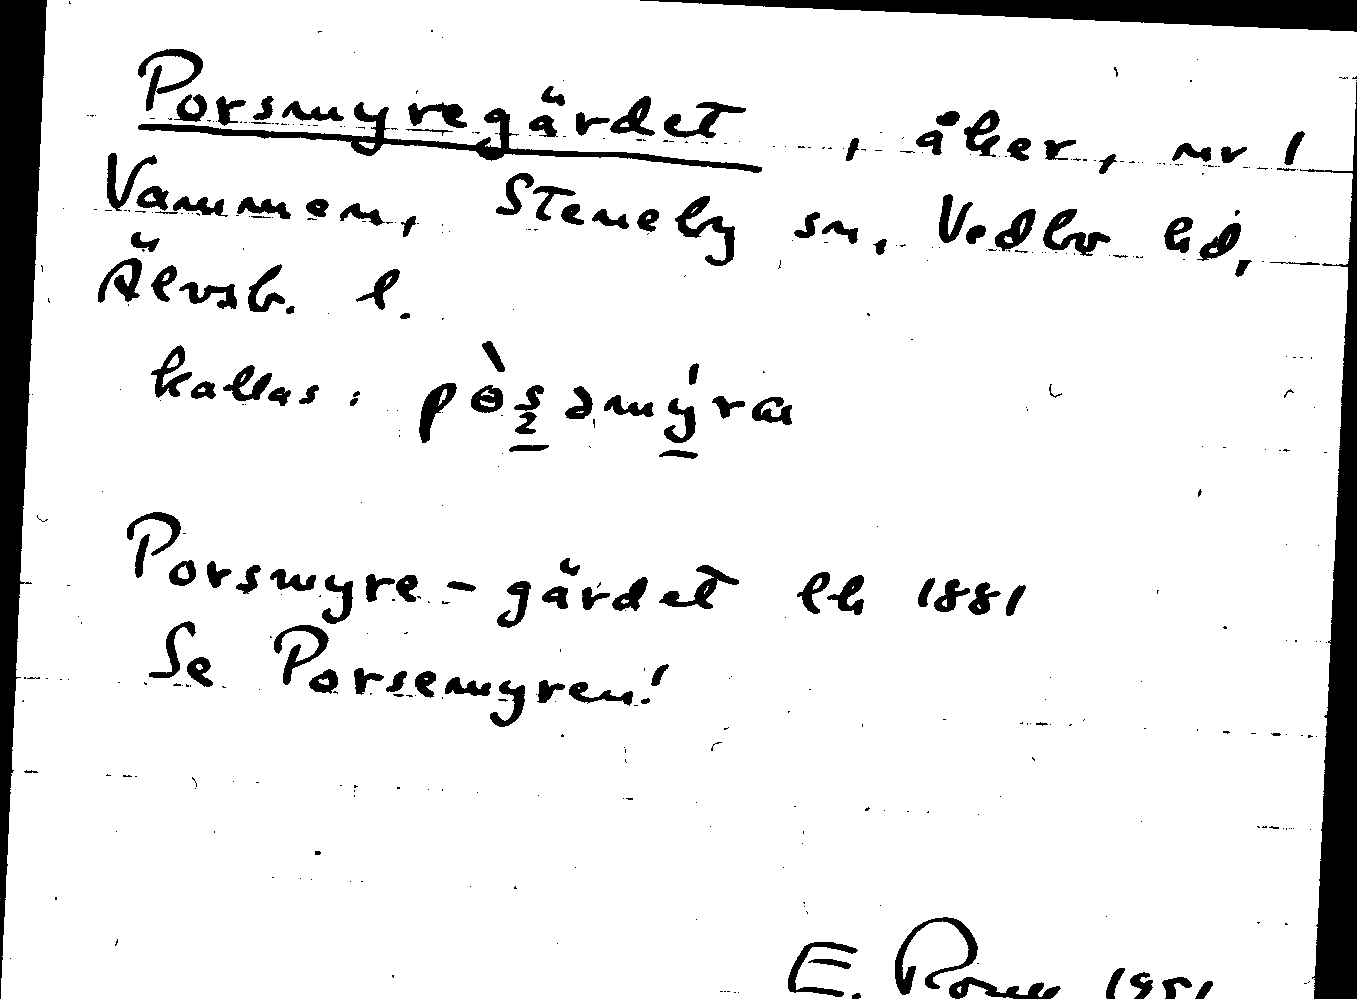 Porsmyregärdet, åker, nr 1
Vammen, Steneby sn, Vedbo hd,
Älvsb. l.
kallas:
Porsmyre-gärdet lh 1881
Se Porsemyren!
E.